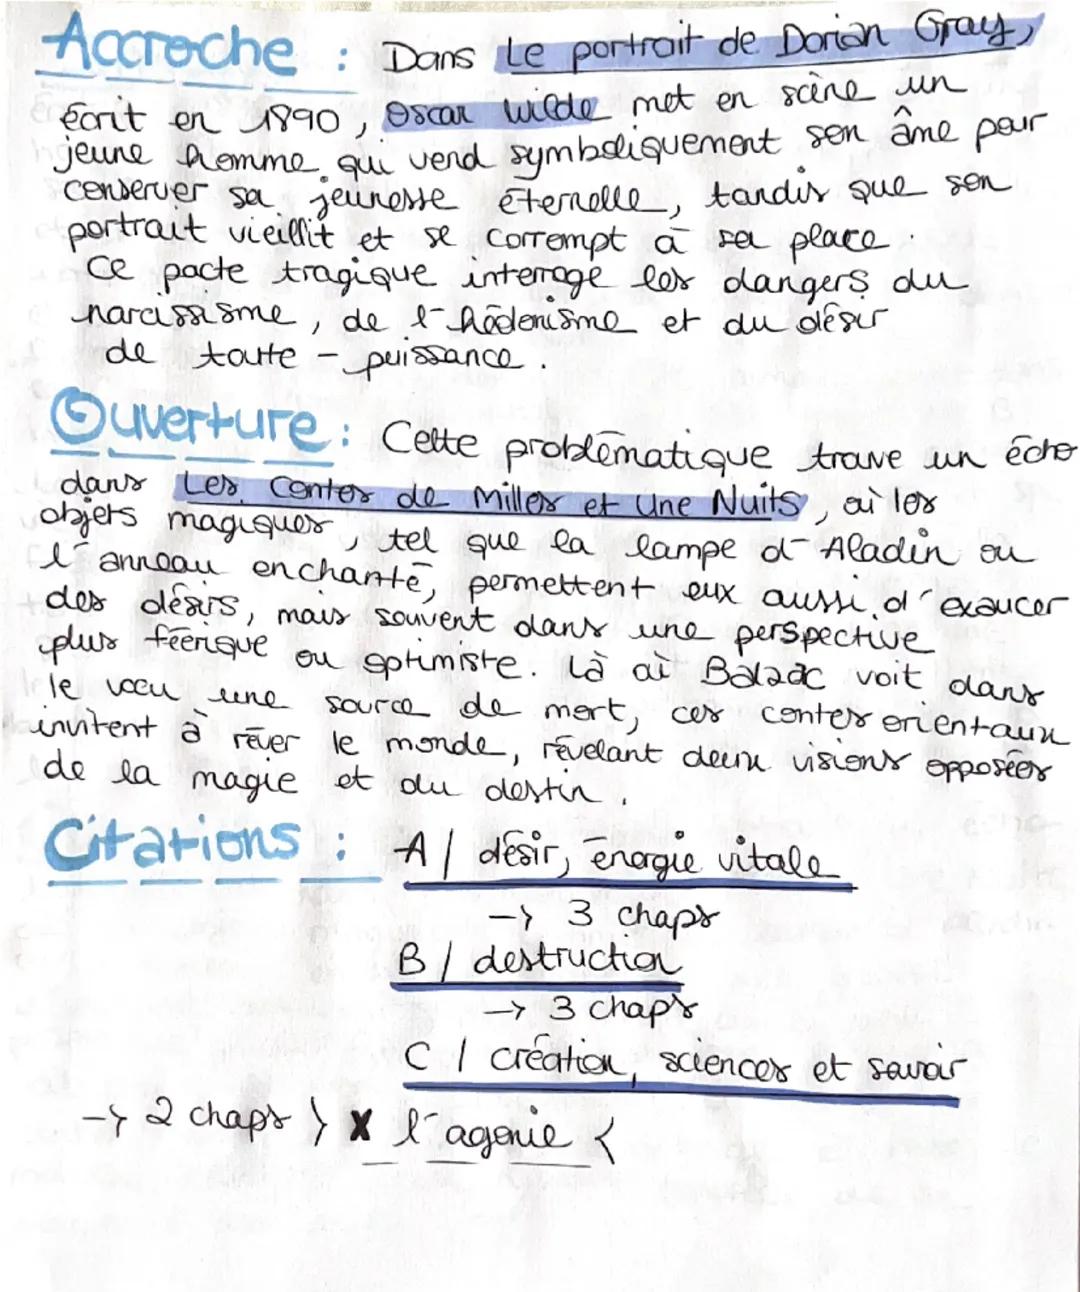 Accroche : Dans Le portrait de Dorian Gray,
écrit en 1890, Oscar Wilde met en scène un
jeune homme qui vend symboliquement son âme pour
conserver sa jeunesse éternelle, tandis que son
portrait vieillit et se corrompt à sa place.
Ce pacte tragique interroge les dangers du
narcissisme, de l'hédonisme et du désir
de toute-puissance.
Ouverture : Cette problématique trouve un écho
dans Les Contes de Milles et Une Nuits, où les
objets magiques, tel que la lampe d'Aladin ou
l'anneau enchanté, permettent eux aussi d'exaucer
des désirs, mais souvent dans une perspective
plus féérique ou optimiste. Là où Balzac voit dans
le vœu une source de mort, ces contes orientaux
invitent à rêver le monde, révélant deux visions opposées
de la magie et du destin.
Citations : A / désir, énergie vitale
-> 3 chaps
B / destruction
-> 3 chaps
C / création, sciences et savoir
-> 2 chaps } x l'agonie {